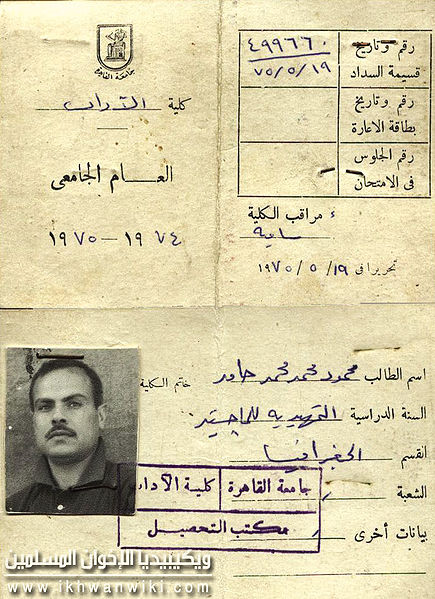 جامعة القاهرة
كلية الآداب
العـــام الجامعى
١٩٧٤ – ١٩٧٥
رقم وتاريخ
قسيمة السداد
٤٩٩٦٦٠
٧٥/٥/١٩
رقم وتاريخ
بطاقة الاعارة
رقم الجلوس
فى الامتحان
مراقب الكلية
سامية
تحريرا فى ١٩ / ٥ / ١٩٧٥
اسم الطالب محمود محمد محمد حامد
خاتم الكلية
السنة الدراسية التمهيدية للماجستير
القسم الجغرافيا
الشعبة
بيانات أخرى
جامعة القاهرة كلية الآداب
مكتب التحصيل
ويكيبيديا الإخوان المسلمين
www.ikhwanwiki.com